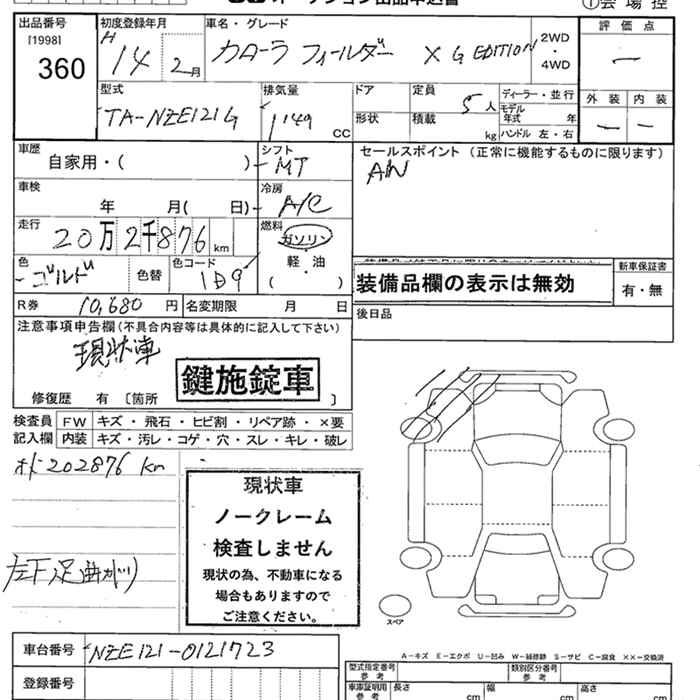 オークション出品申込書
①会場控
出品番号 初度登録年月 車名・グレード 評価点
[1998] H 2WD
360 14 2月 カローラ フィールダー X G EDITION ・ 4WD ー
型式 排気量 ドア 定員 ディーラー・並行 外装 内装
5人 モデル年式 年
TA-NZE121G 1149 CC 形状 積載 kg ハンドル 左・右 ー ー
車歴 自家用・( ) シフト MT セールスポイント(正常に機能するものに限ります)
AW
車検 年 月( 日) 冷房 A/C
走行 20万2千876 km 燃料 ガソリン・軽・油 ( )
色 ゴールド 色替 色コード 1D9 装備品欄の表示は無効 新車保証書 有・無
R券 10,680円 名変期限 月 日 後日品
注意事項申告欄(不具合内容等は具体的に記入して下さい)
現状車
鍵施錠車
修復歴 有 〔箇所 〕
検査員 FW キズ・飛石・ヒビ割・リペア跡・×要
記入欄 内装 キズ・汚レ・コゲ・穴・スレ・キレ・破レ
202876 km
現状車
ノークレーム
検査しません
現状の為、不動車になる
場合もありますので
ご注意ください。
左下足曲がり
スペア
A-キズ E-エクボ U-凹み W-補修跡 S-サビ C-腐食 ××-交換済
車台番号 NZE121-0121723 型式指定番号 参考 類別区分番号 参考
登録番号 車庫証明用 参考 長さ cm 幅 cm 高さ cm